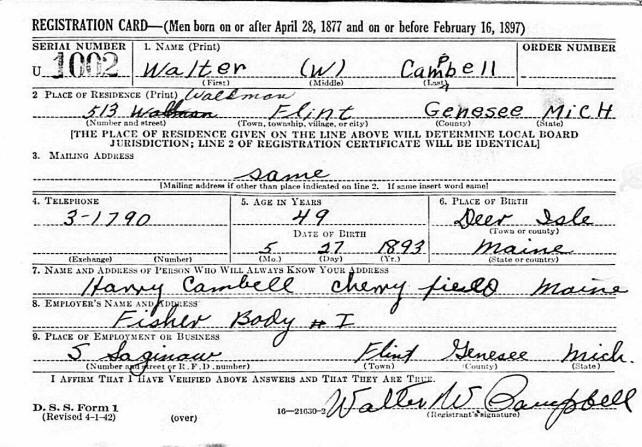 REGISTRATION CARD—(Men born on or after April 28, 1877 and on or before February 16, 1897)
SERIAL NUMBER 1. NAME (Print) ORDER NUMBER
U 1002 Walter (W) Campbell
(First) (Middle) (Last)
2 PLACE OF RESIDENCE (Print) Waldman
513 Waldman Flint Genesee MicH
(Number and street) (Town, township, village, or city) (County) (State)
[THE PLACE OF RESIDENCE GIVEN ON THE LINE ABOVE WILL DETERMINE LOCAL BOARD
JURISDICTION; LINE 2 OF REGISTRATION CERTIFICATE WILL BE IDENTICAL]
3. MAILING ADDRESS
same
[Mailing address if other than place indicated on line 2. If same insert word same]
4. TELEPHONE 5. AGE IN YEARS 6. PLACE OF BIRTH
3-1790 49 Deer Isle
DATE OF BIRTH (Town or county)
5 27 1893 Maine
(Exchange) (Number) (Mo.) (Day) (Yr.) (State or country)
7. NAME AND ADDRESS OF PERSON WHO WILL ALWAYS KNOW YOUR ADDRESS
Harry Cambell cherry field Maine
8. EMPLOYER'S NAME AND ADDRESS
Fisher Body # I
9. PLACE OF EMPLOYMENT OR BUSINESS
S Saginaw Flint Genesee Mich.
(Number and street or R. F. D. number) (Town) (County) (State)
I AFFIRM THAT I HAVE VERIFIED ABOVE ANSWERS AND THAT THEY ARE TRUE.
Walter W Campbell
D. S. S. Form 1 16—21630-2 (Registrant's signature)
(Revised 4-1-42) (over)